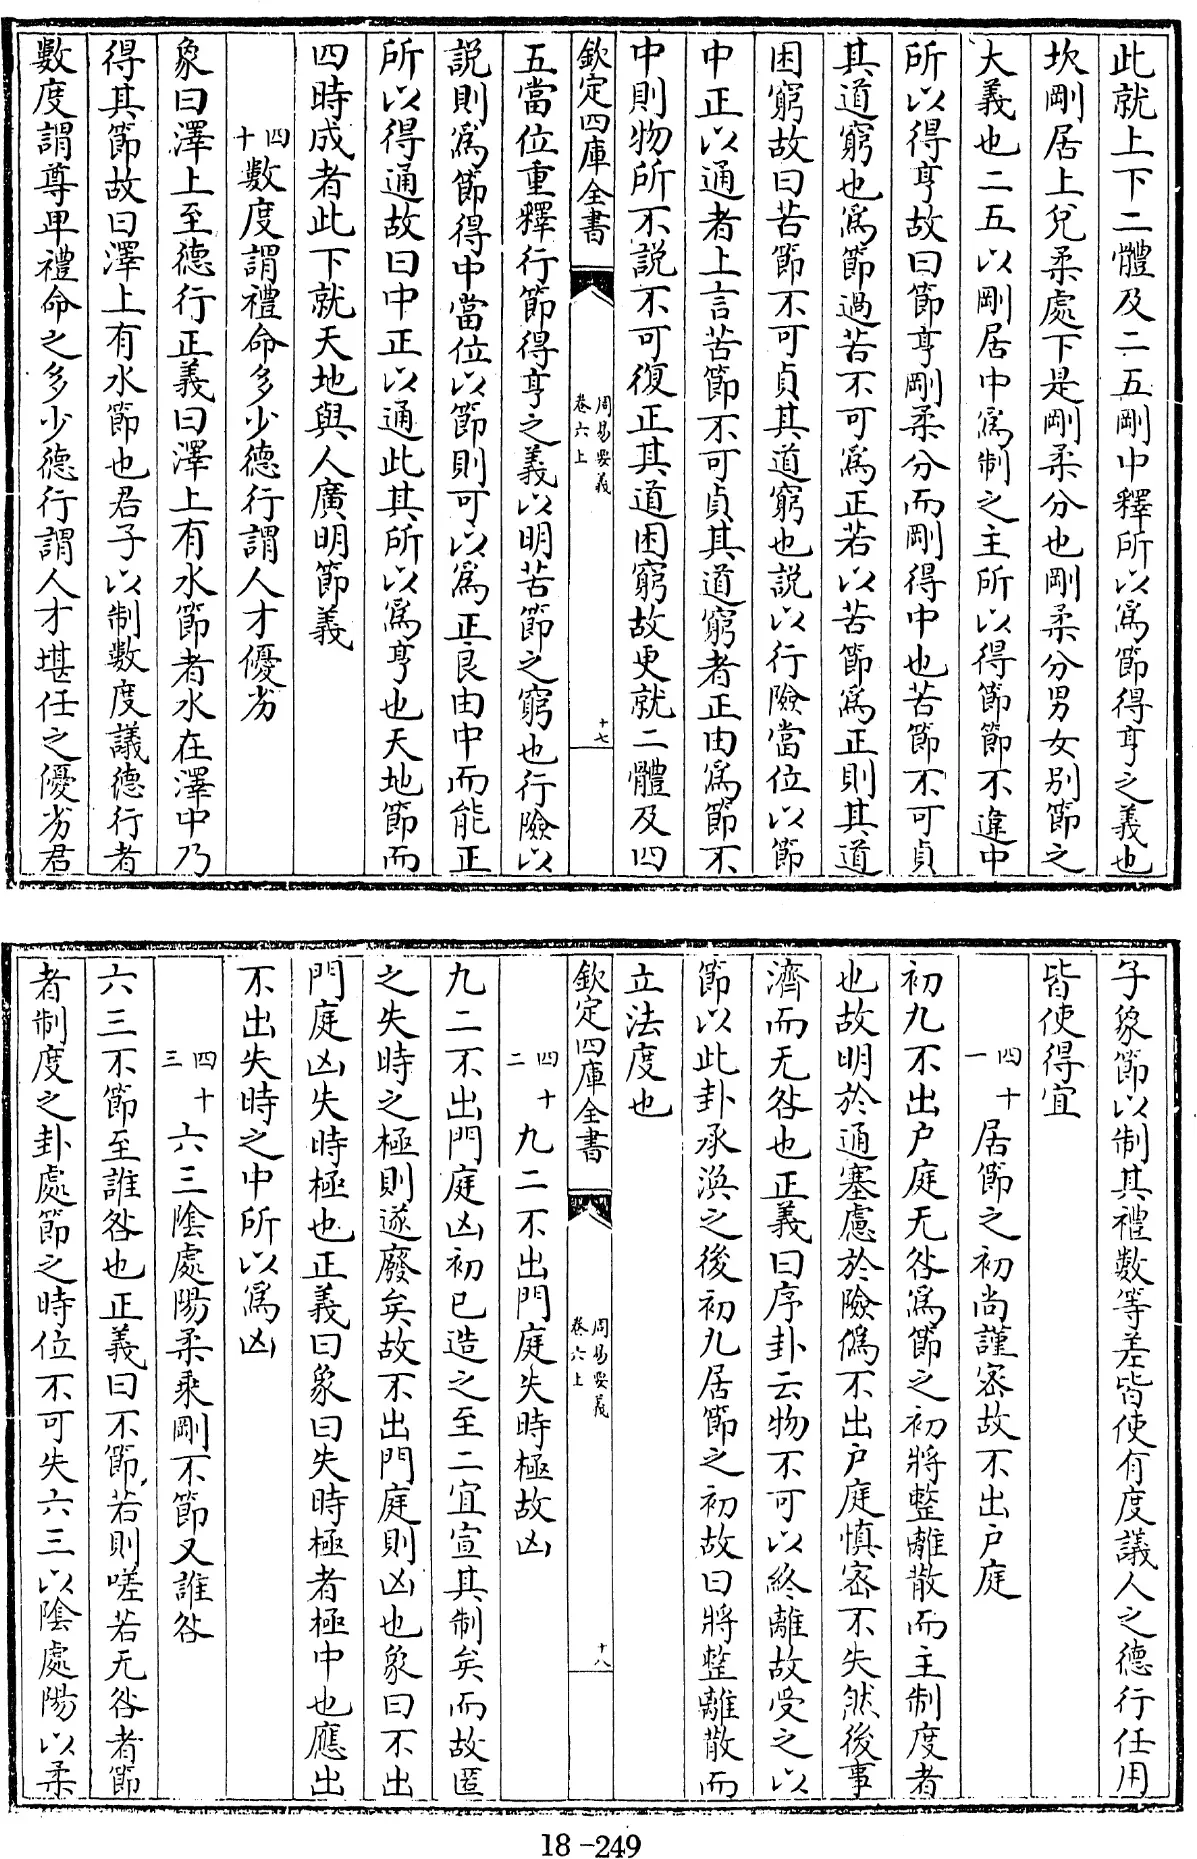 此就上下二體及二五剛中釋所以爲節得亨之義也
坎剛居上兌柔處下是剛柔分也剛柔分男女別節之
大義也二五以剛居中爲制之主所以得節節不違中
所以得亨故曰節亨剛柔分而剛得中也苦節不可貞
其道窮也爲節過苦不可爲正若以苦節爲正則其道
困窮故曰苦節不可貞其道窮也説以行險當位以節
中正以通者上言苦節不可貞其道窮者正由爲節不
中則物所不説不可復正其道困窮故更就二體及四
欽定四庫全書
周易要義
卷六上
十七
五當位重釋行節得亨之義以明苦節之窮也行險以
説則爲節得中當位以節則可以爲正良由中而能正
所以得通故曰中正以通此其所以爲亨也天地節而
四時成者此下就天地與人廣明節義
四十數度謂禮命多少德行謂人才優劣
象曰澤上至德行正義曰澤上有水節者水在澤中乃
得其節故曰澤上有水節也君子以制數度議德行者
數度謂尊卑禮命之多少德行謂人才堪任之優劣君
子象節以制其禮數等差皆使有度議人之德行任用
皆使得宜
四十一居節之初尚謹密故不出户庭
初九不出户庭无咎爲節之初將整離散而主制度者
也故明於通塞慮於險僞不出户庭慎密不失然後事
濟而无咎也正義曰序卦云物不可以終離故受之以
節以此卦承渙之後初九居節之初故曰將整離散而
立法度也
欽定四庫全書
周易要義
卷六上
十八
四十二九二不出門庭失時極故凶
九二不出門庭凶初已造之至二宜宣其制矣而故匿
之失時之極則遂廢矣故不出門庭則凶也象曰不出
門庭凶失時極也正義曰象曰失時極者極中也應出
不出失時之中所以爲凶
四十三六三陰處陽柔乘剛不節又誰咎
六三不節至誰咎也正義曰不節若則嗟若无咎者節
者制度之卦處節之時位不可失六三以陰處陽以柔
18-249